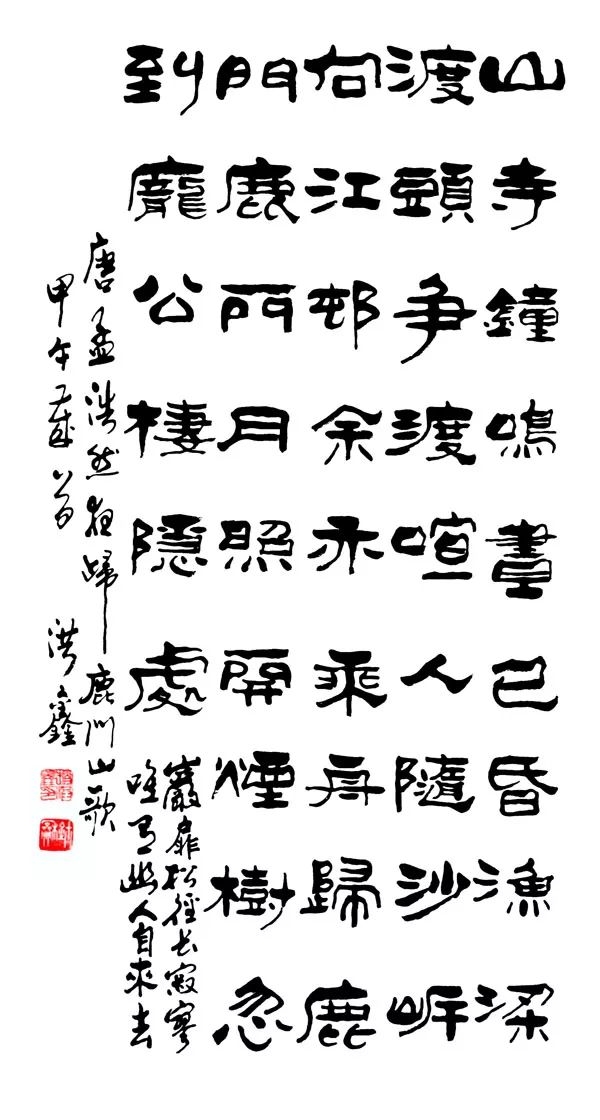 山寺鐘鳴晝已昏漁梁
渡頭爭渡喧人隨沙岸
向江邨余亦乘舟歸鹿
門鹿門月照開煙樹忽
到龐公棲隱處
巖扉松徑長寂寥
唯有幽人自來去
唐孟浩然夜歸鹿門山歌
甲午歲首 洪鑫